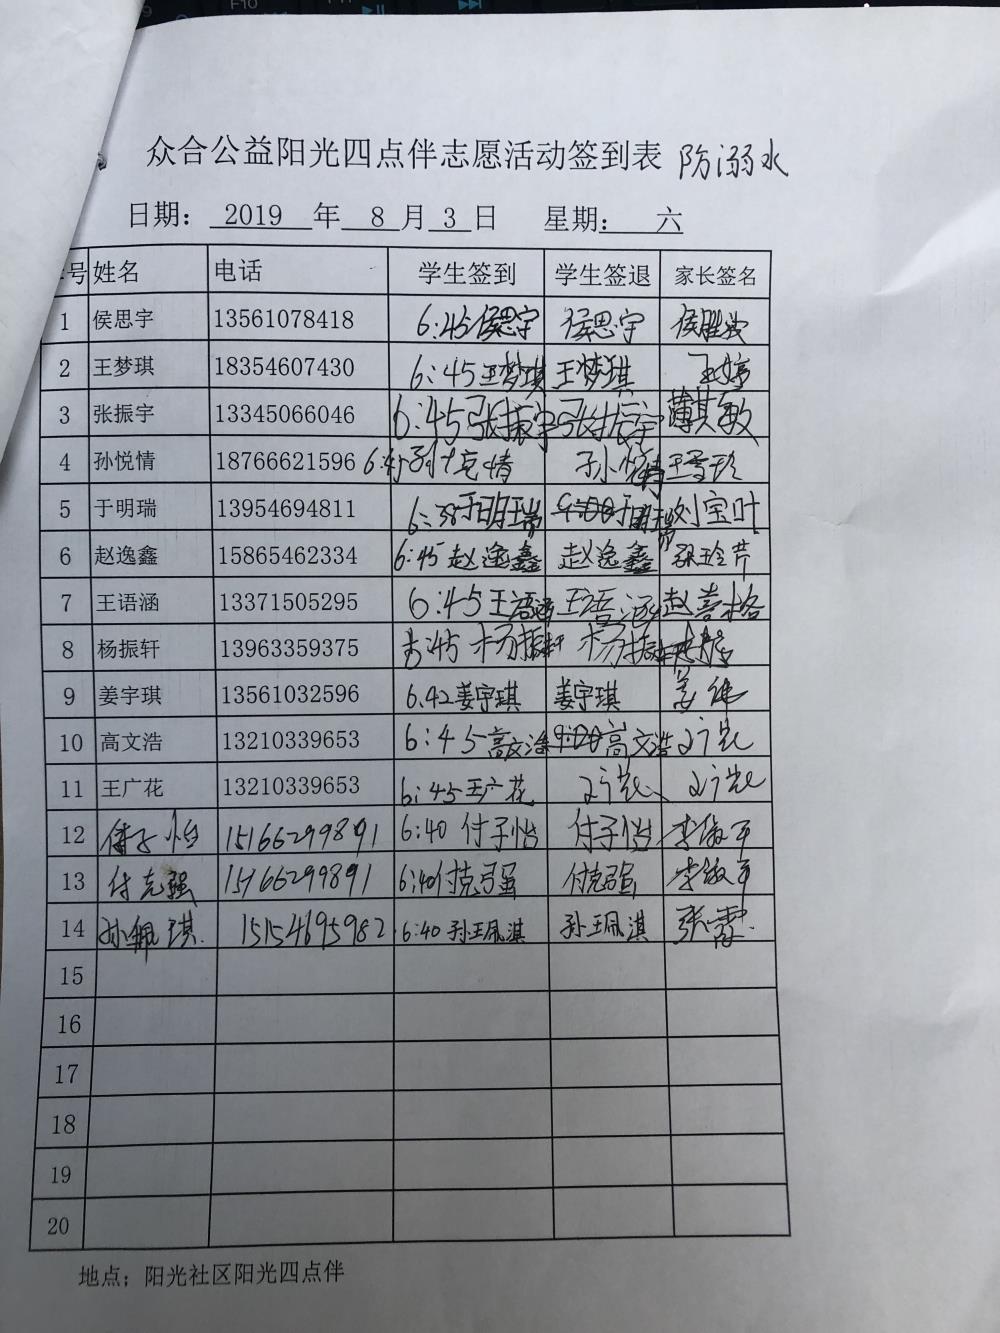 众合公益阳光四点伴志愿活动签到表 防溺水
日期： 2019 年 8 月 3 日 星期： 六
号 姓名 电话 学生签到 学生签退 家长签名
1 侯思宇 13561078418 6:45侯思宇 侯思宇
2 王梦琪 18354607430 6:45王梦琪 王梦琪 王婷
3 张振宇 13345066046 6:45张振宇 张振宇 薄其敏
4 孙悦情 18766621596 6:45
5 于明瑞 13954694811 6:38于明瑞 9:00于明瑞 刘宝叶
6 赵逸鑫 15865462334 6:45 赵逸鑫 赵逸鑫
7 王语涵 13371505295 6:45王语涵 王语涵 赵
8 杨振轩 13963359375 6:45 杨振轩 杨振
9 姜宇琪 13561032596 6.42姜宇琪 姜宇琪 姜
10 高文浩 13210339653 6:45高文浩 9:00高文浩
11 王广花 13210339653 6:45王广花
12 付子怡 15166299891 6:40 付子怡 付子怡 李俊平
13 付克强 15166299891 6:40付克强 付克强 李俊平
14 孙佩琪. 15154695982 6:40 孙王佩淇 孙王佩淇 张霞
15
16
17
18
19
20
地点；阳光社区阳光四点伴